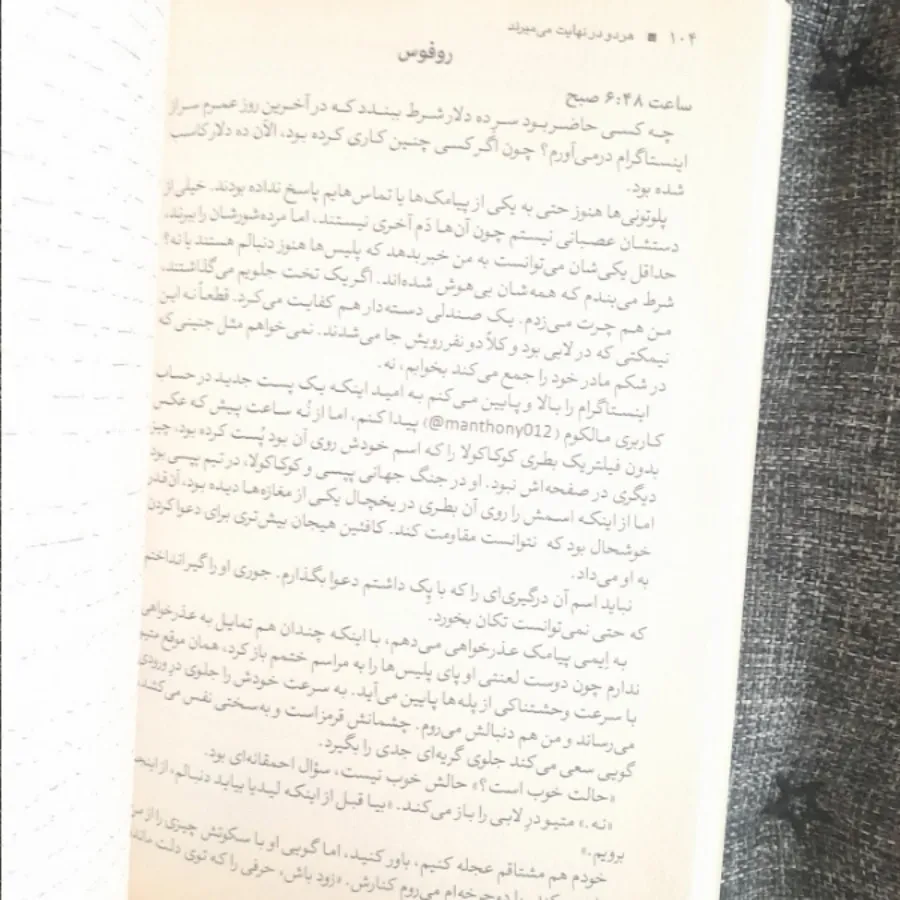 ۱۰۴ ■ هر دو در نهایت می‌میرند
روفوس
ساعت ۶:۴۸ صبح
چه کسی حاضر بود سرِ ده دلار شرط ببندد که در آخرین روز عمرم سر از
اینستاگرام درمی‌آورم؟ چون اگر کسی چنین کاری کرده بود، الآن ده دلار کاسب
شده بود.
پلوتونی‌ها هنوز حتی به یکی از پیامک‌ها یا تماس‌هایم پاسخ نداده بودند. خیلی از
دستشان عصبانی نیستم چون آن‌ها دَم آخری نیستند، اما مرده‌شورشان را ببرند،
حداقل یکی‌شان می‌توانست به من خبر بدهد که پلیس‌ها هنوز دنبالم هستند یا نه؟
شرط می‌بندم که همه‌شان بی‌هوش شده‌اند. اگر یک تخت جلویم می‌گذاشتند،
من هم چرت می‌زدم. یک صندلی دسته‌دار هم کفایت می‌کرد. قطعاً نه این
نیمکتی که در لابی بود و کلاً دو نفر رویش جا می‌شدند. نمی‌خواهم مثل جنینی که
در شکم مادر خود را جمع می‌کند بخوابم، نه.
اینستاگرام را بالا و پایین می‌کنم به امید اینکه یک پست جدید در حساب
کاربری مالکوم (@manthony012) پیدا کنم، اما از نُه ساعت پیش که عکس
بدون فیلتر یک بطری کوکاکولا را که اسم خودش روی آن بود پُست کرده بود، چیز
دیگری در صفحه‌اش نبود. او در جنگ جهانی پپسی و کوکاکولا، در تیم پپسی بود
اما از اینکه اسمش را روی آن بطری در یخچال یکی از مغازه‌ها دیده بود، آن‌قدر
خوشحال بود که نتوانست مقاومت کند. کافئین هیجان بیش‌تری برای دعوا کردن
به او می‌داد.
نباید اسم آن درگیری‌ای را که با پِک داشتم دعوا بگذارم. جوری او را گیر انداختم
که حتی نمی‌توانست تکان بخورد.
به اِیمی پیامک عذرخواهی می‌دهم، با اینکه چندان هم تمایل به عذرخواهی
ندارم چون دوست لعنتی او پای پلیس‌ها را به مراسم ختمم باز کرد، همان موقع متیو
با سرعت وحشتناکی از پله‌ها پایین می‌آید. به سرعت خودش را جلوی درِ ورودی
می‌رساند و من هم دنبالش می‌روم. چشمانش قرمز است و به‌سختی نفس می‌کشد،
گویی سعی می‌کند جلوی گریه‌ای جدی را بگیرد.
«حالت خوب است؟» حالش خوب نیست، سؤال احمقانه‌ای بود.
«نه.» متیو درِ لابی را باز می‌کند. «بیا قبل از اینکه لیدیا بیاید دنبالم، از اینجا
برویم.»
خودم هم مشتاقم عجله کنیم، باور کنید، اما گویی او با سکوتش چیزی را از من
با دوچرخه‌ام می‌روم کنارش. «زود باش، حرفی را که توی دلت مانده